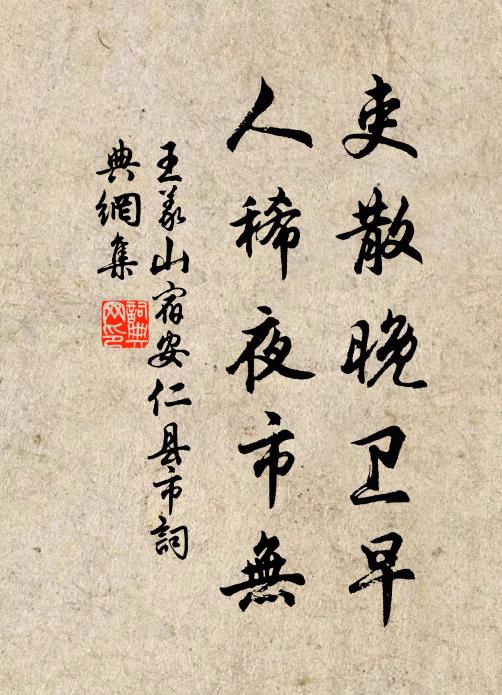 吏散晚卫早
人稀夜市無
王义山宿安仁县市詞
典網集
詞典
网印